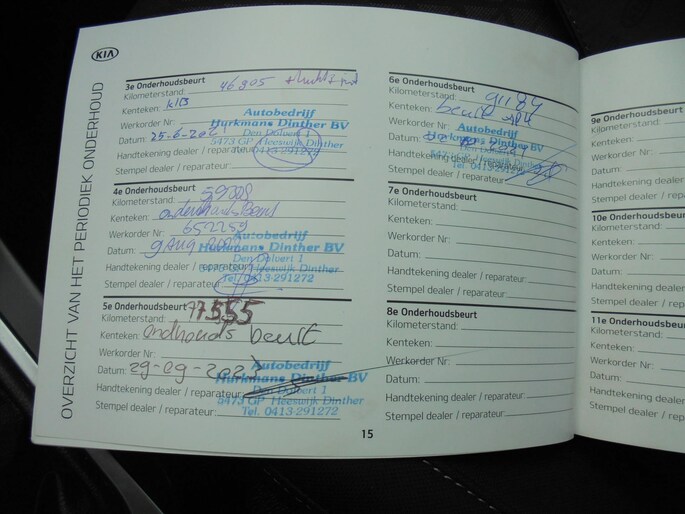 KIA
OVERZICHT VAN HET PERIODIEK ONDERHOUD
3e Onderhoudsbeurt
Kilometerstand: 46905
Kenteken:
Werkorder Nr:
Datum: 25-6-2021
Handtekening dealer / reparateur:
Stempel dealer / reparateur:
Autobedrijf
Hurkmans Dinther BV
Den Dolvert 1
5473 GP Heeswijk Dinther
Tel. 0413-291272
4e Onderhoudsbeurt
Kilometerstand:
Kenteken: onderhoudsbeurt
Werkorder Nr: 652259
Datum: 9 Aug 2022
Handtekening dealer / reparateur:
Stempel dealer / reparateur:
Autobedrijf
Hurkmans Dinther BV
Den Dolvert 1
5473 GP Heeswijk Dinther
Tel. 0413-291272
5e Onderhoudsbeurt
Kilometerstand: 77555
Kenteken: ondhouds beurt
Werkorder Nr:
Datum: 29-09-2023
Handtekening dealer / reparateur:
Stempel dealer / reparateur:
Autobedrijf
Hurkmans Dinther BV
Den Dolvert 1
5473 GP Heeswijk Dinther
Tel. 0413-291272
15
6e Onderhoudsbeurt
Kilometerstand: 91184
Kenteken: beurt
Werkorder Nr:
Datum:
Handtekening dealer / reparateur:
Stempel dealer / reparateur:
Autobedrijf
Hurkmans Dinther BV
5473 GP Heeswijk Dinther
Tel. 0413-291272
7e Onderhoudsbeurt
Kilometerstand:
Kenteken:
Werkorder Nr:
Datum:
Handtekening dealer / reparateur:
Stempel dealer / reparateur:
8e Onderhoudsbeurt
Kilometerstand:
Kenteken:
Werkorder Nr:
Datum:
Handtekening dealer / reparateur:
Stempel dealer / reparateur:
9e Onderhoudsbeurt
Kilometerstand:
Kenteken:
Werkorder Nr:
Datum:
Handtekening dealer
Stempel dealer / re
10e Onderhoudsbeurt
Kilometerstand:
Kenteken:
Werkorder Nr:
Datum:
Handtekening dealer
Stempel dealer / repa
11e Onderhoudsbeurt
Kilometerstand:
Kenteken:
Werkorder Nr:
Datum:
Handtekening dealer
Stempel dealer / repar